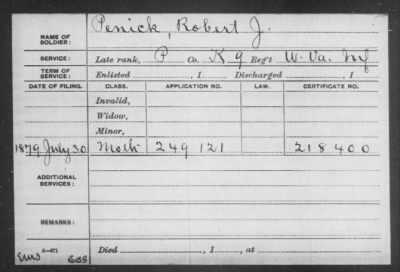 NAME OF SOLDIER: Penick, Robert J.
SERVICE: Late rank, P Co. K 9 Reg't W. Va. Inf
TERM OF SERVICE: Enlisted , 1 Discharged , 1
DATE OF FILING. CLASS. APPLICATION NO. LAW. CERTIFICATE NO.
Invalid,
Widow,
Minor,
1879 July 30 Moth 249 121 218 400
ADDITIONAL SERVICES:
REMARKS:
Died , 1 , at